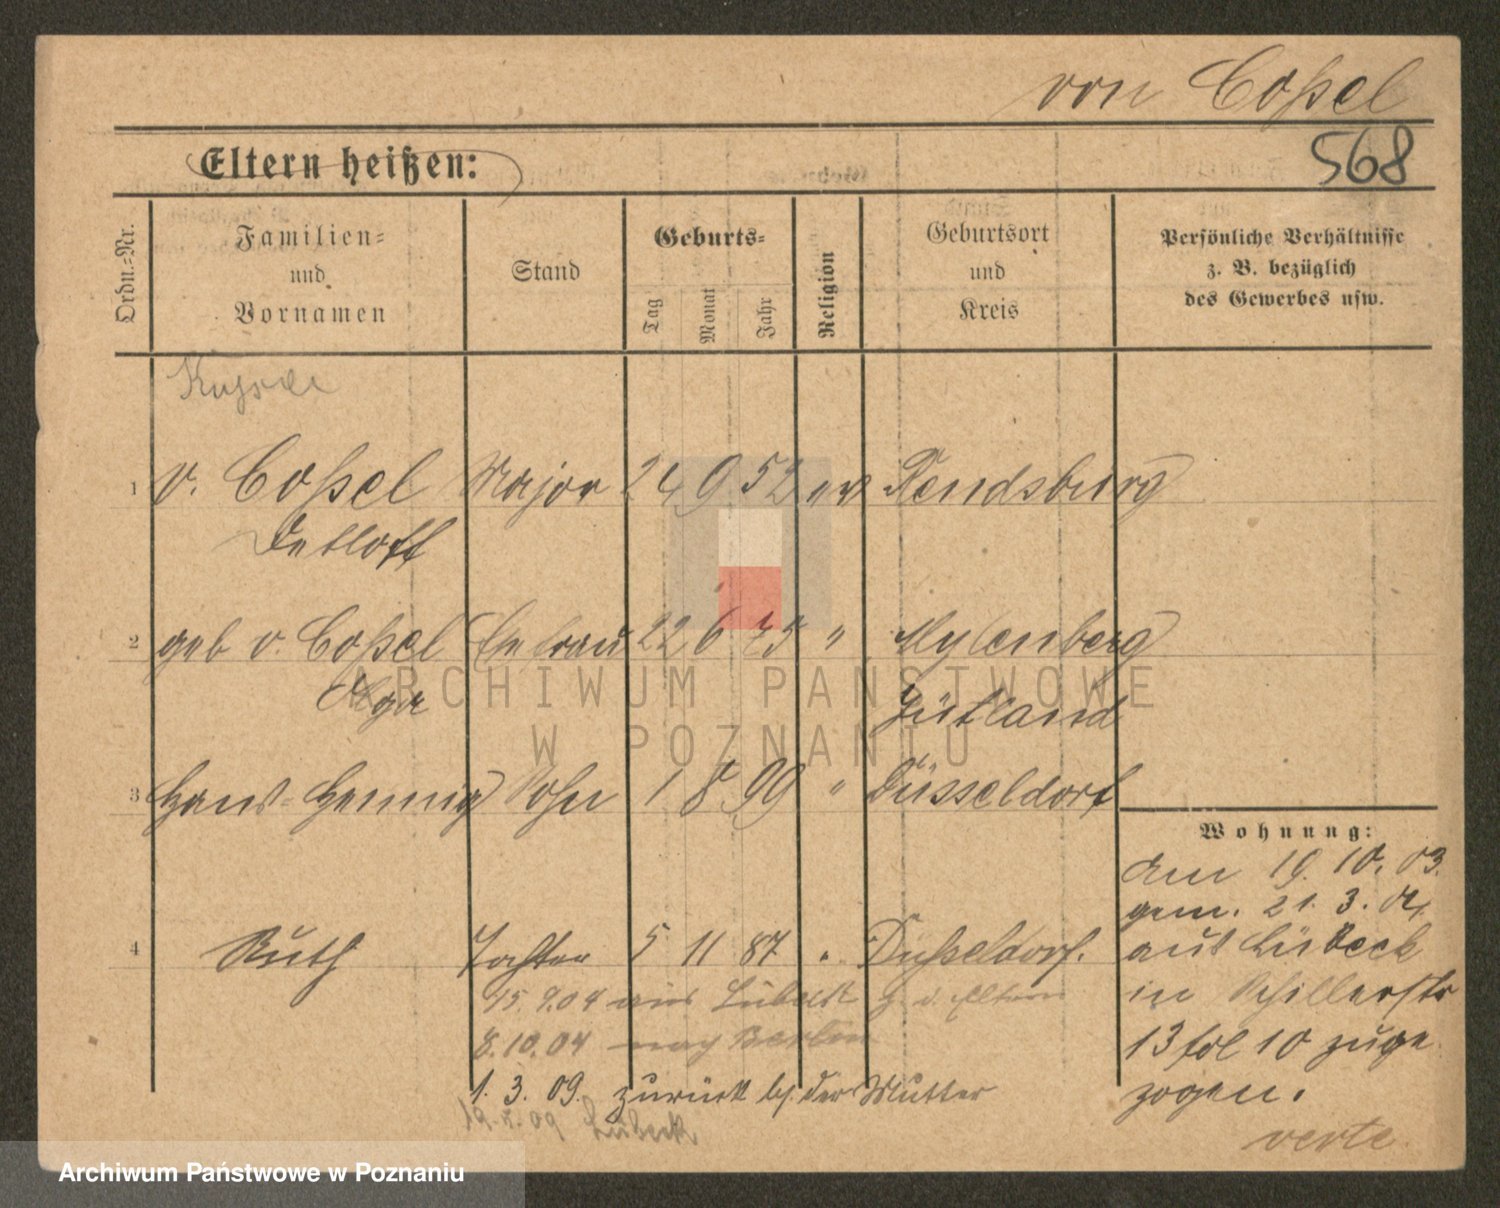 von Coßel
Eltern heißen:
568
Ordn.-Nr.
Familien-
und
Vornamen
Stand
Geburts-
Tag
Monat
Jahr
Religion
Geburtsort
und
Kreis
Persönliche Verhältnisse
z. B. bezüglich
des Gewerbes usw.
1 v. Coßel Major 24 9 52 ev Rendsburg
Detloff
2 geb v. Coßel Ehefrau 22 6 "
Olga Jütland
3 Hans-Henning Sohn 1 8 99 " Düsseldorf
4 Ruth Tochter 5 11 87 " Düsseldorf.
15. 9.04 aus Lübeck z. d. Eltern
8.10.04 nach Berlin
1. 3. 09. zurück bei der Mutter
09 Lübeck
Wohnung:
Am 19. 10. 03.
gem. 21. 3. 04.
aus Lübeck
in Schillerstr
13 fol 10 zuge
zogen.
verte
ARCHIWUM PAŃSTWOWE
W POZNANIU
Archiwum Państwowe w Poznaniu